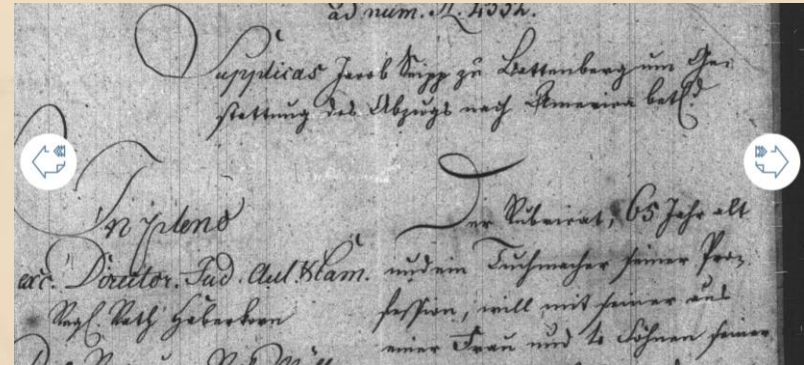 ad num. R. 4332.
Supplicas Jacob Seipp zu Battenberg um Ge-
stattung des Abzugs nach America betr.
In pleno
exc. Director. Jud. Aul. & Cam.
Regs. Rath Haberkorn
Der Rubricat, 65 Jahr alt
und ein Tuchmacher seiner Pro-
fession, will mit seiner aus
einer Frau und 4 Söhnen seiner